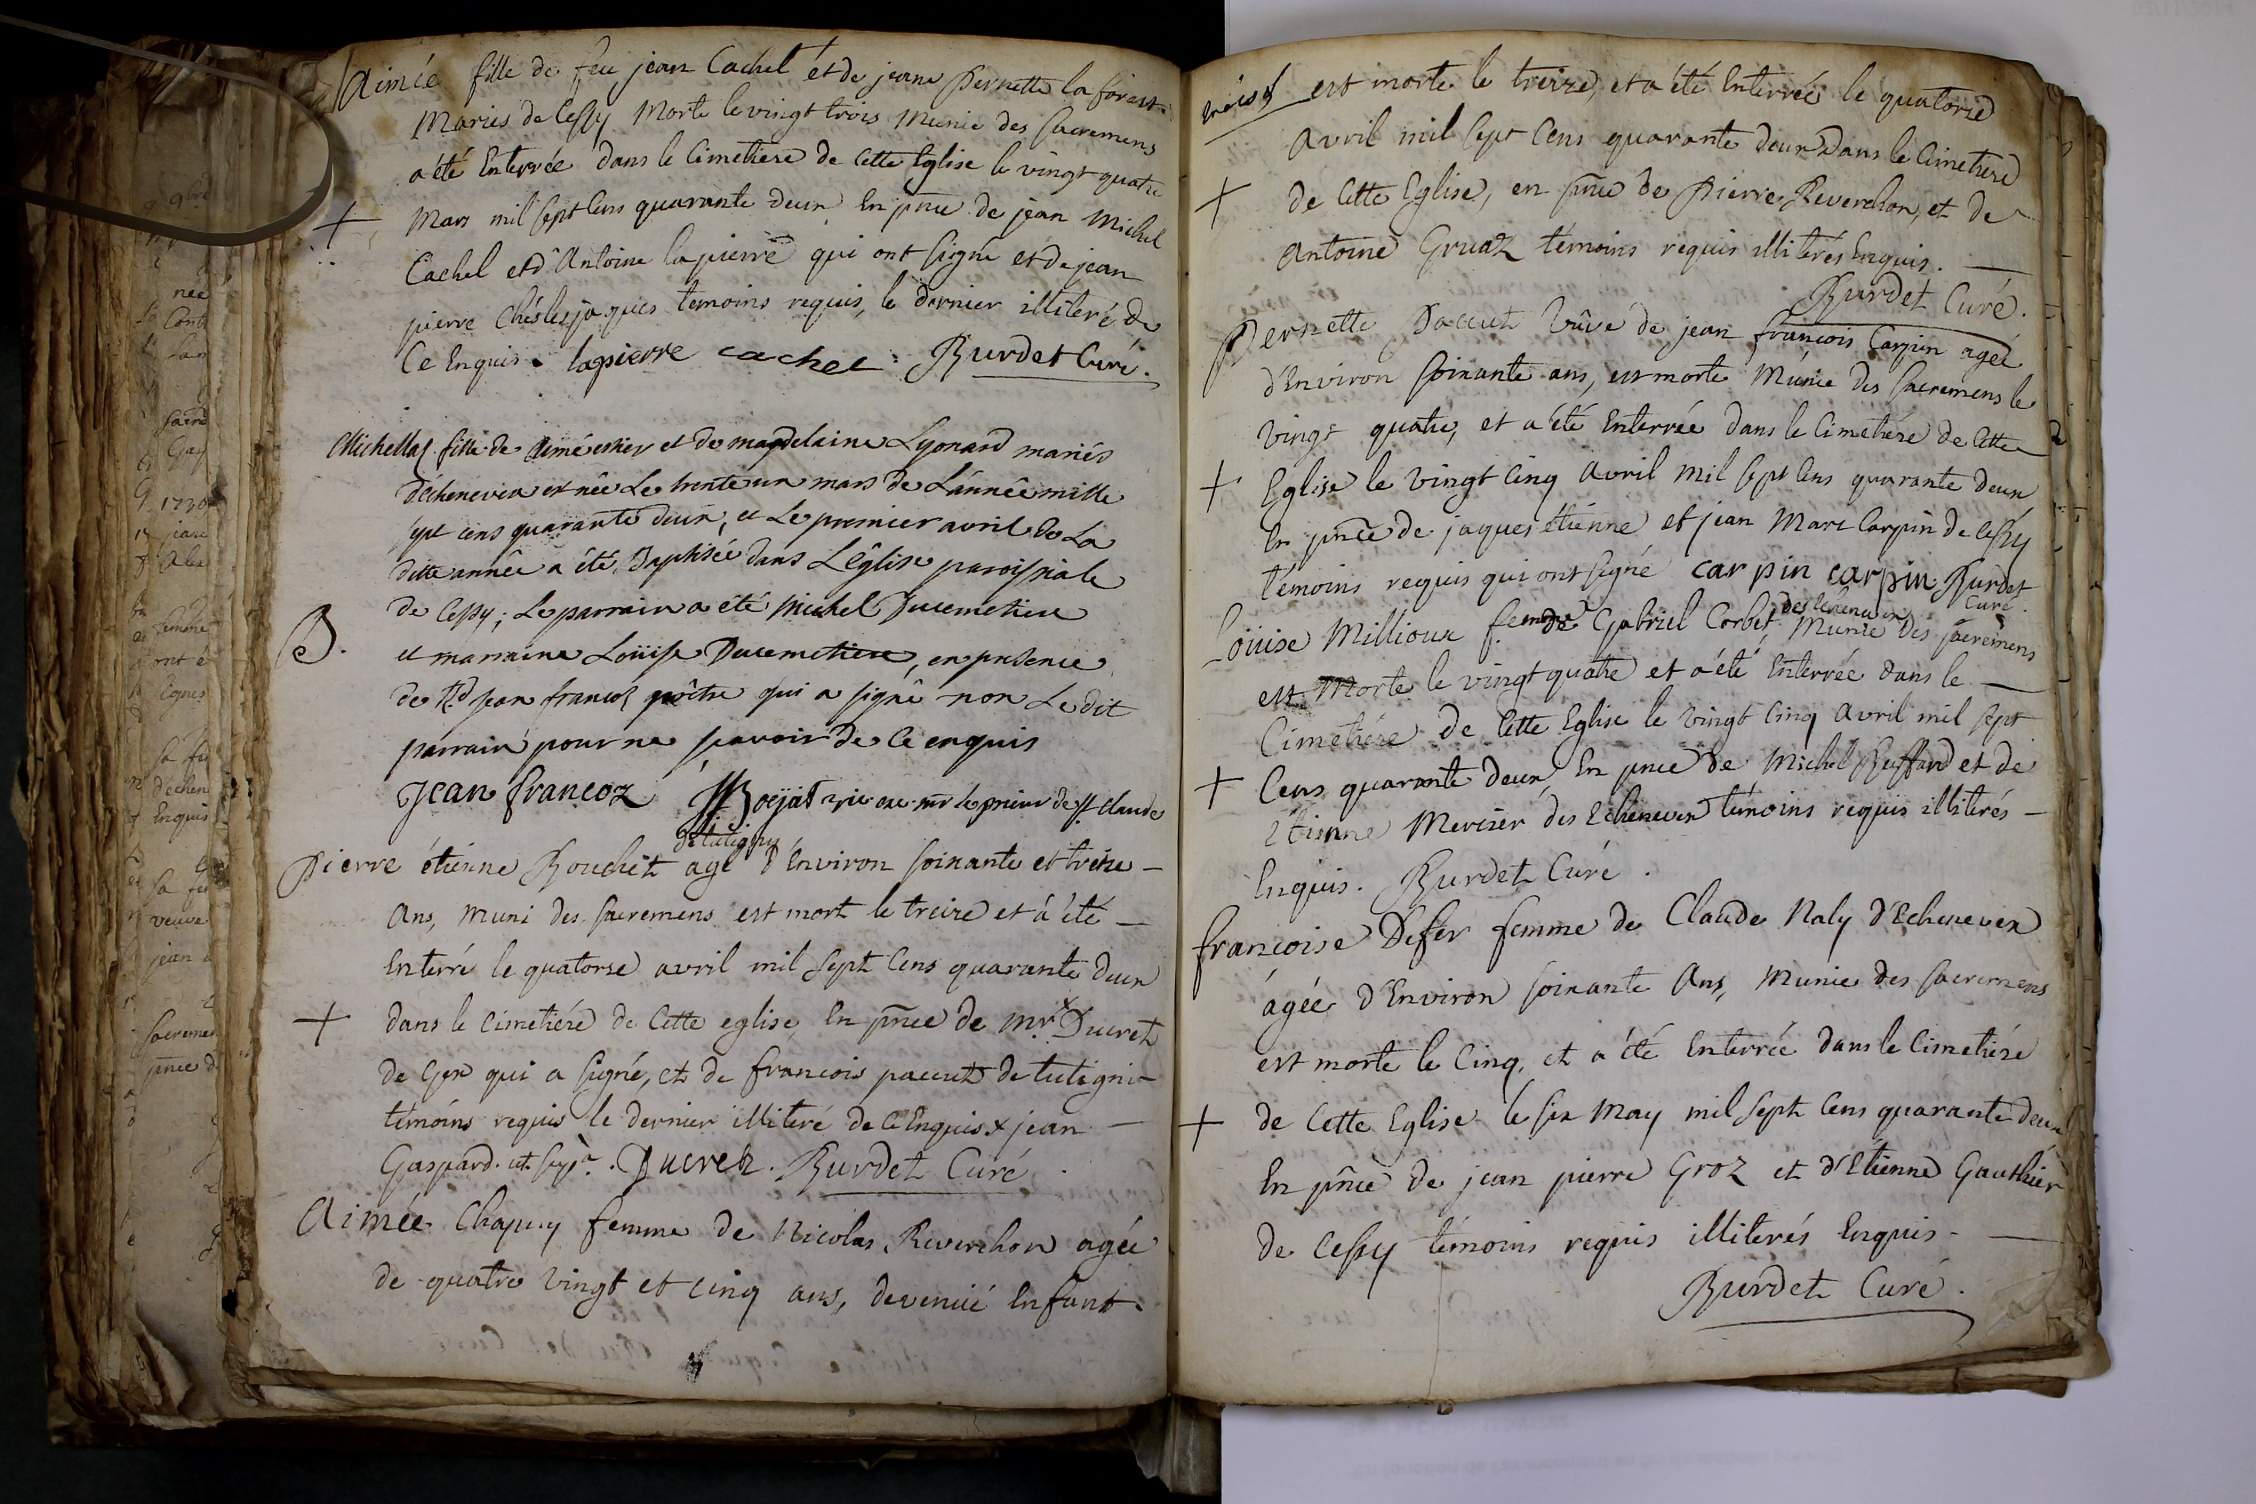 Aimée fille de feu jean Cachel et de jeane Pernette la forest
Mariés de Cessy Morte le vingt trois Munie des Sacremens
a été Enterrée dans le Cimetiere de Cette Eglise le vingt quatre
+ Mars mil sept Cens quarante deux En pnce de jean Michel
Cachel et d'Antoine lapierre qui ont signé et de jean
pierre jaques temoins requis, le dernier illiteré de
Ce Enquis. lapierre cachel Burdet Curé.
Michellaz fille de Aimé et de magdelaine Lyonard mariés
d'échenevex est née Le trente un mars de L'année mille
sept cens quarante deux, et Le premier avril de La
ditte année a été Baptisée dans L'église paroissiale
de Cessy; Le parrain a été Michel Ducemetiere
B. et marraine Loüise Ducemetiere, en presence
de Rd jean francoz prêtre qui a signé non Le dit
parrain pour ne sçavoir de Ce enquis
Jean francoz Boejat vic mr le prieur de St Claude
de tutigny
Pierre étienne Bouchet agé d'Environ soixante et treize
Ans, Muni des Sacremens est mort le treize et a été
Enterré le quatorse avril mil sept Cens quarante deux
+ dans le Cimetiére de Cette eglise, En pnce de Mr. x Ducret
de Gex qui a signé, et de francois paccut de tutigni
témoins requis le dernier illiteré de Ce Enquis x jean
Gaspard. ut supa. Ducret. Burdet Curé
Aimée Chapuy femme de Nicolas Reverchon agée
de quatre vingt et cinq ans, devenüe Enfant
est morte le treize, et a été Enterrée le quatorze
Avril mil sept Cens quarante deux Dans le Cimetiere
+ de Cette Eglise, en pnce de Pierre Reverchon, et de
Antoine Gruaz témoins requis illiterés Enquis.
Burdet Curé.
Pernette Paccut Vûve de jean françois Carpin agée
d'Environ soixante ans, est morte Munie des sacremens le
Vingt quatre, et a été Enterrée dans le Cimetiére de Cette
+ Eglise le Vingt Cinq Avril mil sept Cens quarante deux
En pnce de jaques étienne et jean Marc Carpin de Cessy
témoins requis qui ont signé carpin carpin Burdet
Curé.
Loüise Millioux femme de Gabriel Corbet Munie des sacremens
est Morte le vingt quatre et a été Enterrée dans le
Cimetiére de Cette Eglise le vingt Cinq Avril mil sept
+ Cens quarante deux, En pnce de Michel Ruffard et de
Etienne Mercier des Echenevex témoins requis illiterés
Enquis. Burdet Curé.
françoise Defer femme de Claude Naly d'Echenevex
âgée d'Environ soixante Ans, Munie des sacremens
est morte le Cinq, et a été Enterrée dans le Cimetiére
+ de Cette Eglise le six May mil sept Cens quarante deux
En pnce de jean pierre Groz et d'Etienne Gauthier
de Cessy témoins requis illiterés Enquis
Burdet Curé.